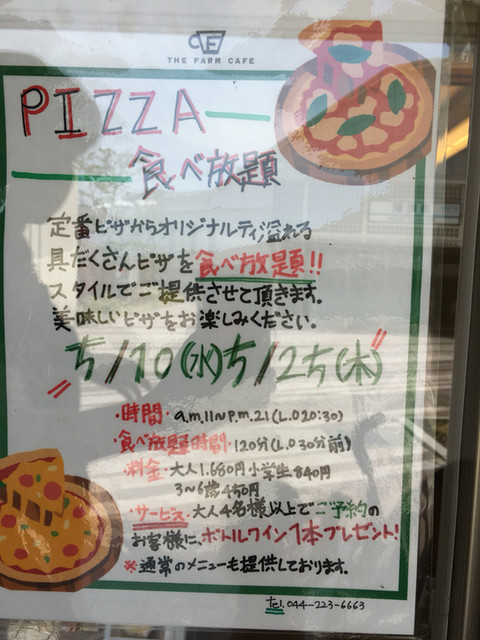 THE FARM CAFE
PIZZA
食べ放題
定番ピザからオリジナルティ溢れる
具だくさんピザを食べ放題!!
スタイルでご提供させて頂きます。
美味しいピザをお楽しみください。
"5/10(水)5/25(木)"
・時間・a.m.11〜p.m.21(L.O20:30)
・食べ放題時間・120分(L.O30分前)
・料金・大人1.680円小学生840円
3〜6歳450円
・サービス・大人4名様以上でご予約の
お客様に、ボトルワイン1本プレゼント!
※通常のメニューも提供しております。
Tel.044-223-6663